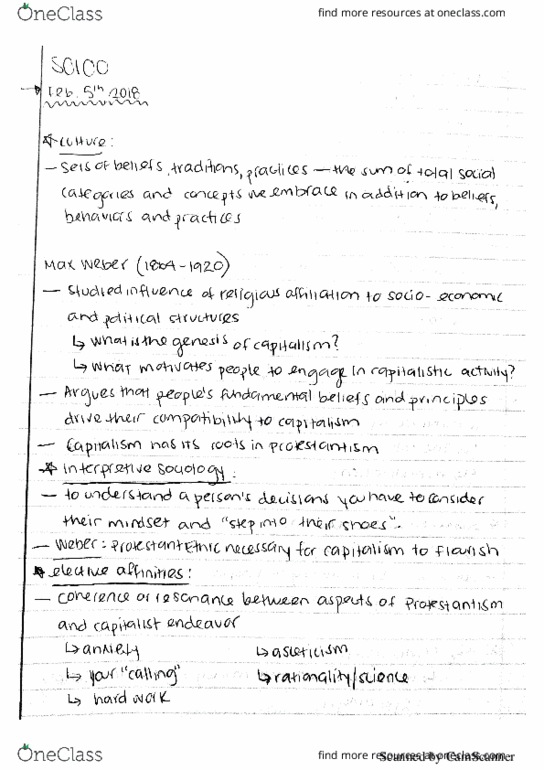 OneClass
find more resources at oneclass.com
SC100
Feb. 5th 2018
* culture:
- sets of beliefs, traditions, practices — the sum of total social
categories and concepts we embrace in addition to beliefs,
behaviors and practices
Max Weber (1864-1920)
- studied influence of religious affiliation to socio-economic
and political structures
↳ what is the genesis of capitalism?
↳ what motivates people to engage in capitalistic activity?
- Argues that people's fundamental beliefs and principles
drive their compatibility to capitalism
- Capitalism has its roots in protestantism
* interpretive sociology:
- to understand a person's decisions you have to consider
their mindset and "step into their shoes".
- Weber: Protestant Ethic necessary for capitalism to flourish
* elective affinities:
- coherence or resonance between aspects of Protestantism
and capitalist endeavor
↳ anxiety ↳ asceticism
↳ your "calling" ↳ rationality/science
↳ hard work
OneClass
find more resources at oneclass.com
Scanned by CamScanner